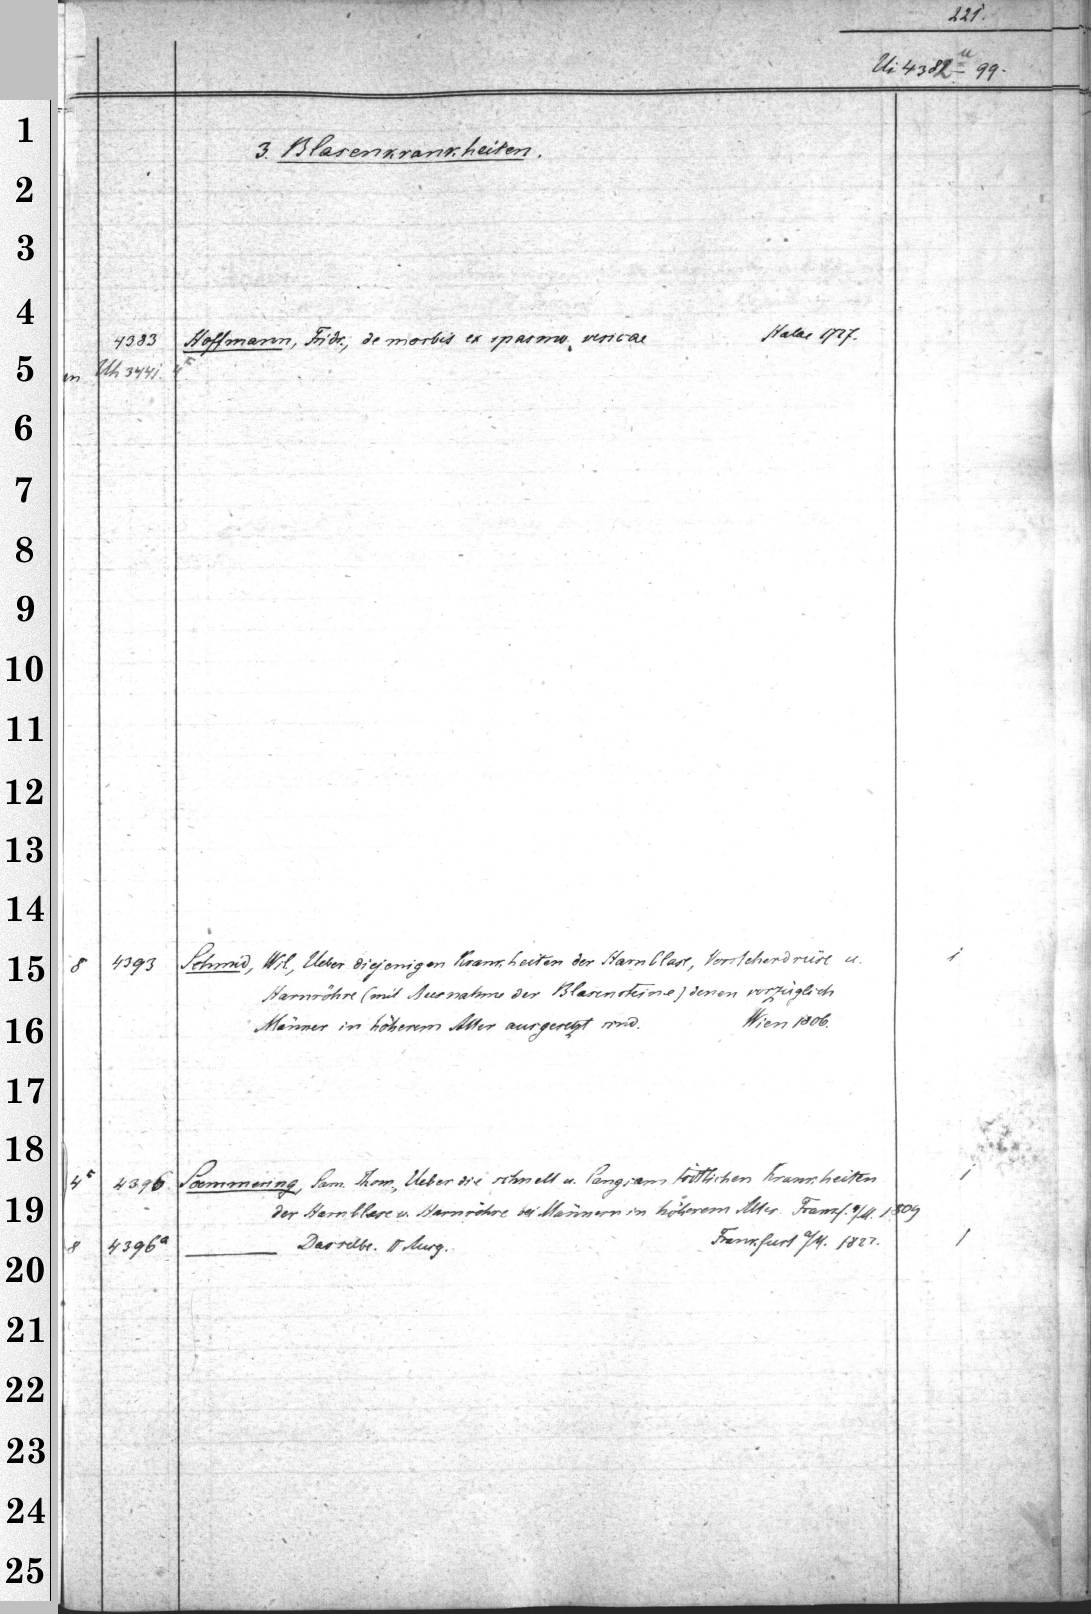 221.
Ui 4382 u 99.
3. Blasenkrankheiten.
4383 Hoffmann, Fridr., de morbis ex spasmo vesicae Halae 1727.
in Uh 3441. 4°
8 4393 Schmid, Wil, Ueber diejenigen Krankheiten der Harnblase, Vorsteherdrüse u. 1
Harnröhre (mit Ausnahme der Blasensteine) denen vorzüglich
Männer in höherem Alter ausgesetzt sind. Wien 1806.
4° 4396 Soemmering, Sam. Thom., Ueber die schnell u. langsam tödtlichen Krankheiten 1
der Harnblase u. Harnröhre bei Männern in höherem Alter. Frankf. a/M. 1809
8 4396a ——— Dasselbe. II Ausg. Frankfurt a/M. 1822. 1
1
2
3
4
5
6
7
8
9
10
11
12
13
14
15
16
17
18
19
20
21
22
23
24
25